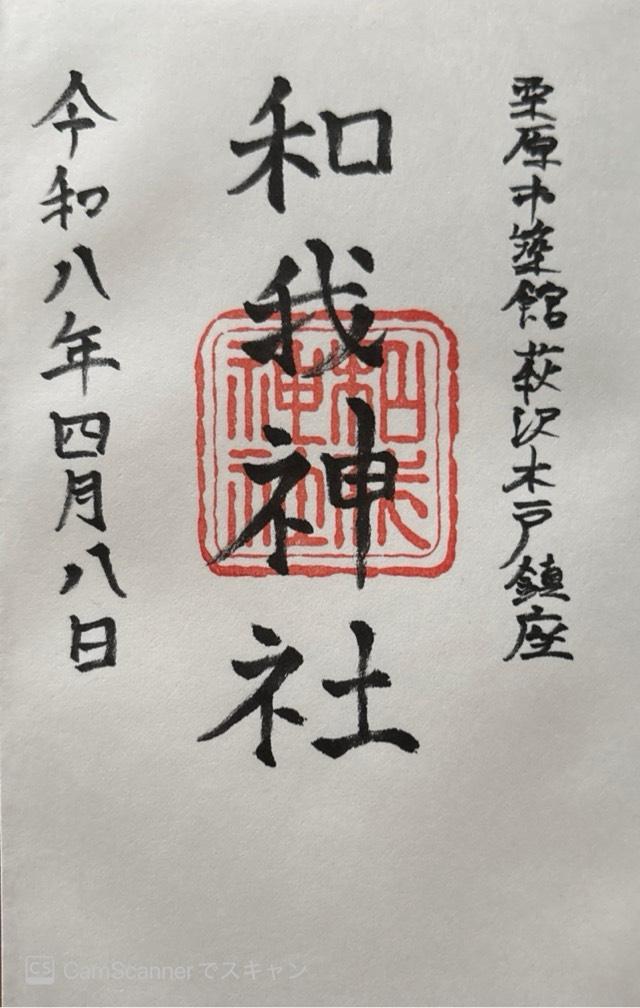 栗原市築館萩沢木戸鎮座
和我神社
和我神社
令和八年四月八日
CS CamScannerでスキャン